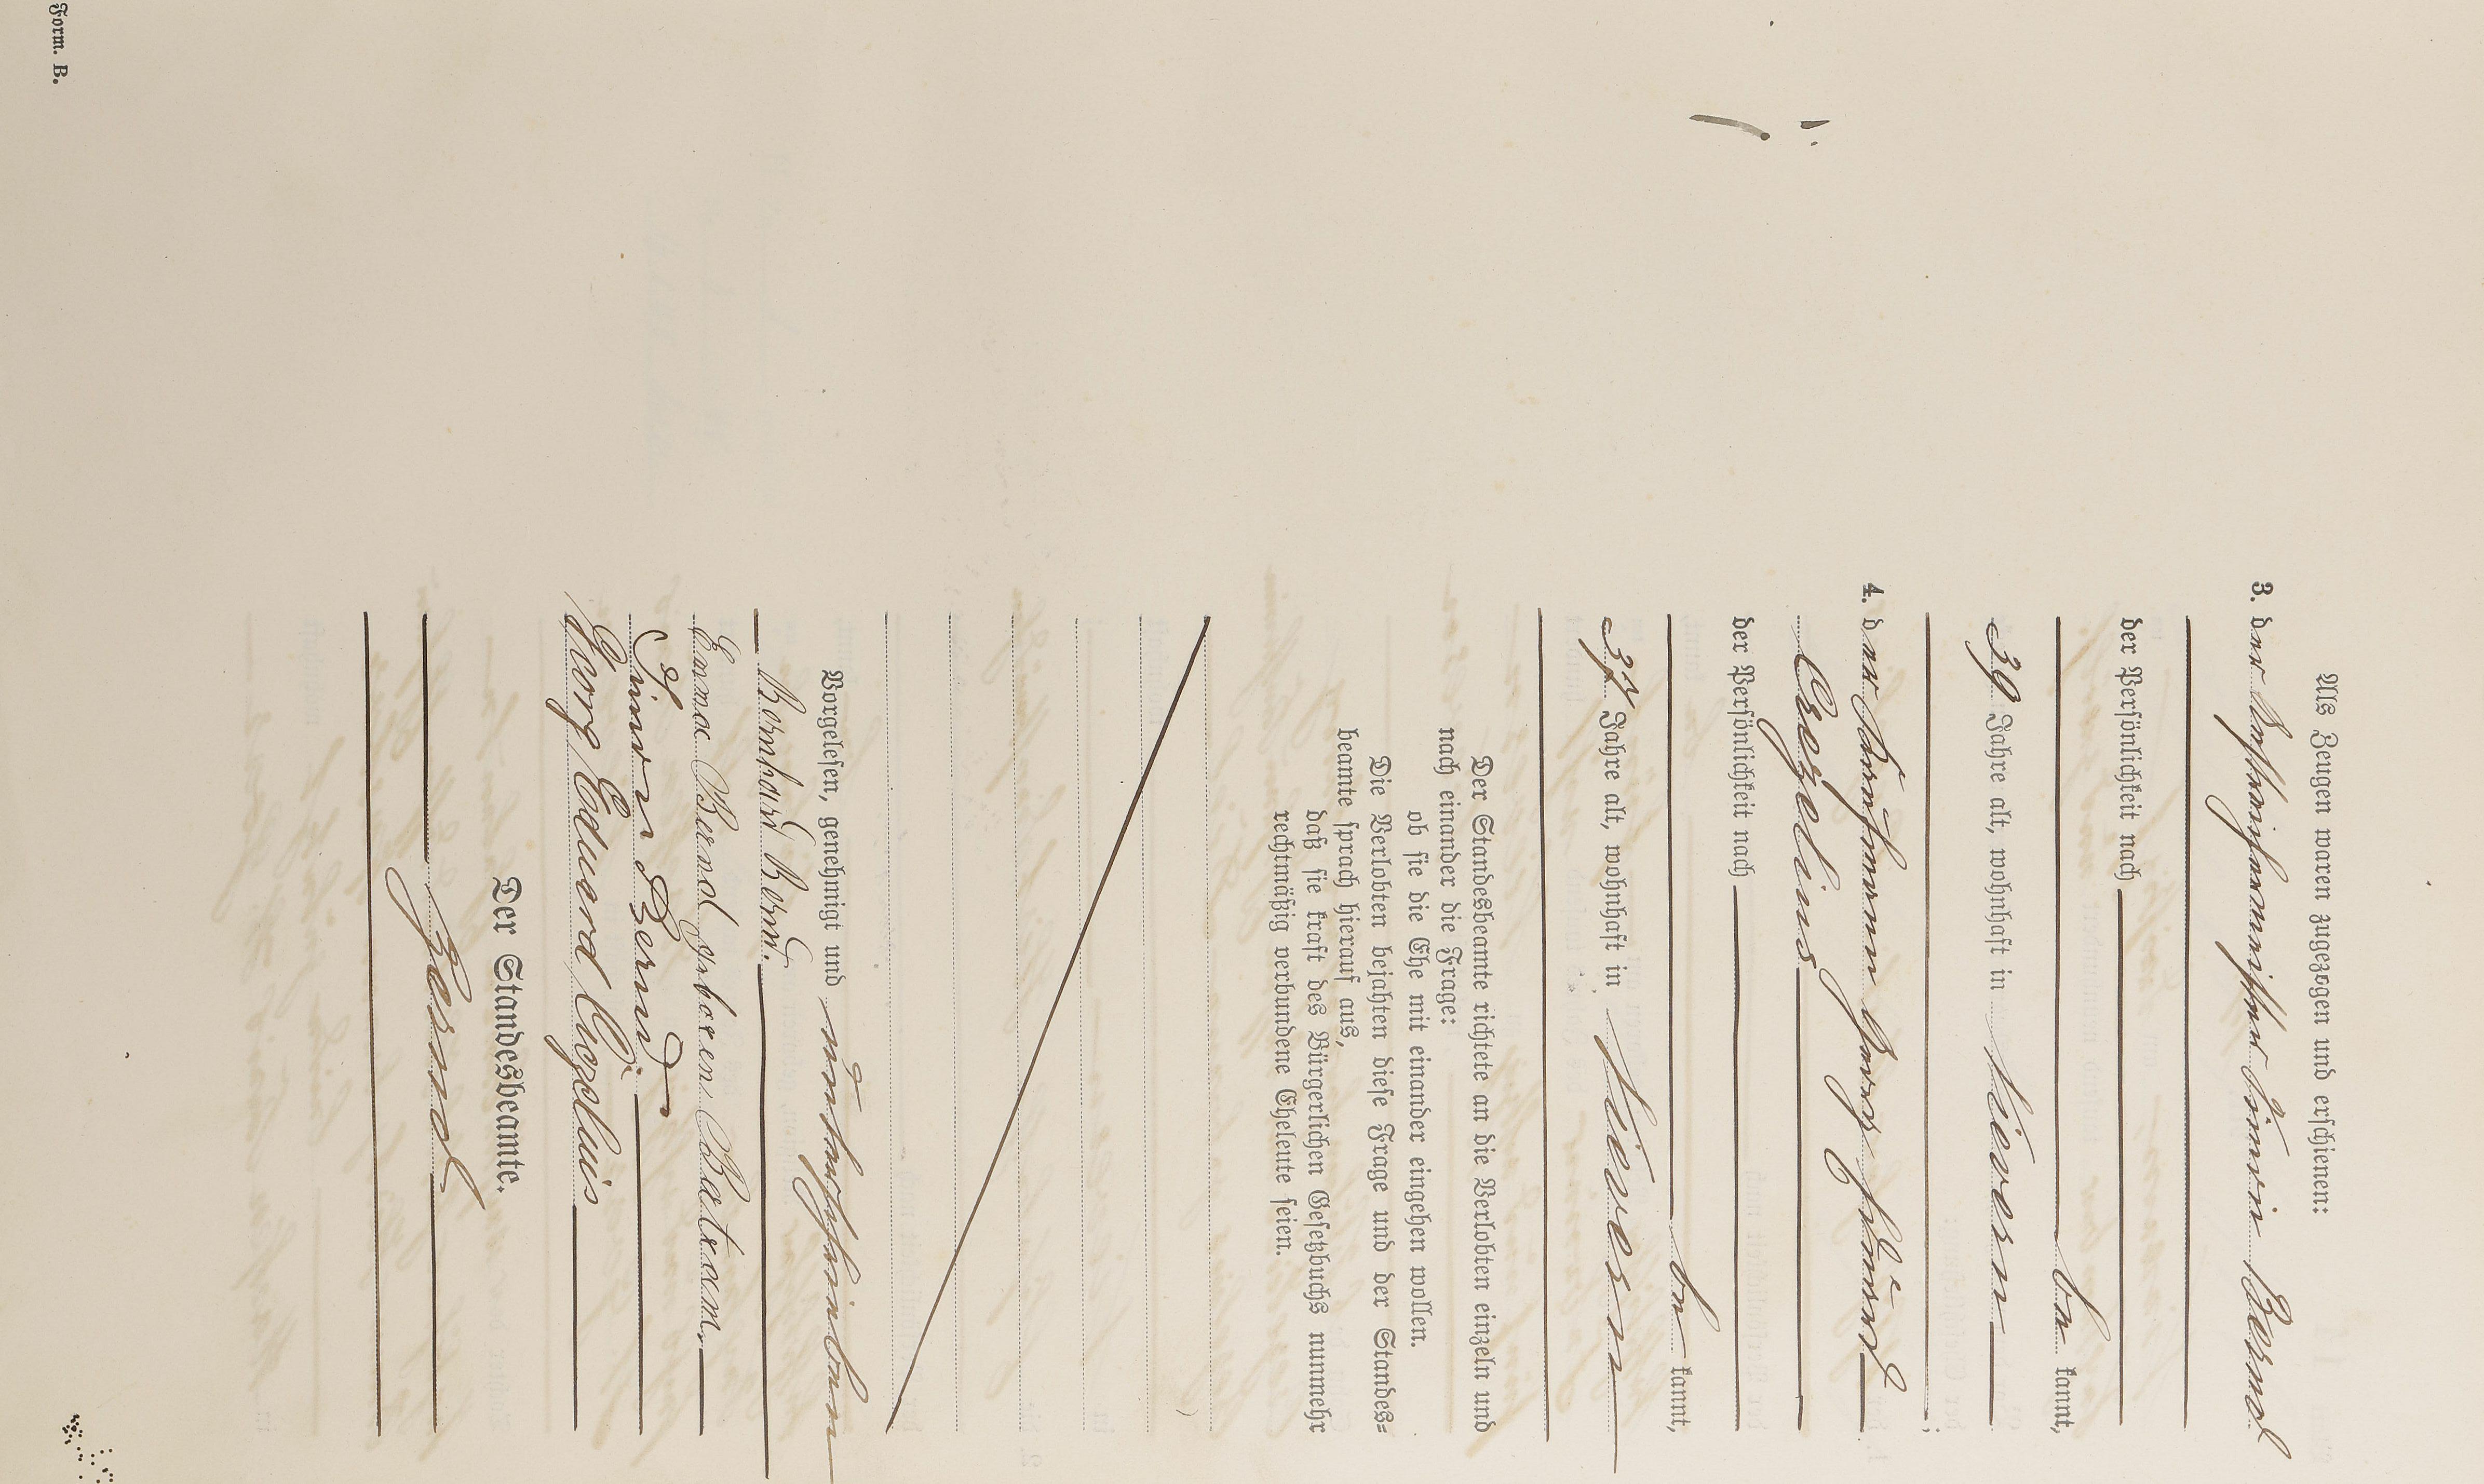 Als Zeugen waren zugezogen und erschienen:
3. der Posthornist Simon Bernd
der Persönlichkeit nach
be kannt,
39 Jahre alt, wohnhaft in Nievern
4. der Kaufmann Georg Eduard
Cezelius
der Persönlichkeit nach
be kannt,
37 Jahre alt, wohnhaft in Nievern
Der Standesbeamte richtete an die Verlobten einzeln und
nach einander die Frage:
ob sie die Ehe mit einander eingehen wollen.
Die Verlobten bejahten diese Frage und der Standes=
beamte sprach hierauf aus,
daß sie kraft des Bürgerlichen Gesetzbuchs nunmehr
rechtmäßig verbundene Eheleute seien.
Vorgelesen, genehmigt und unterschrieben
Bernhard Bernd.
Emma Bernd geboren
Simon Bernd
Georg Eduard Cezelius
Der Standesbeamte.
Bernd
Form. B.